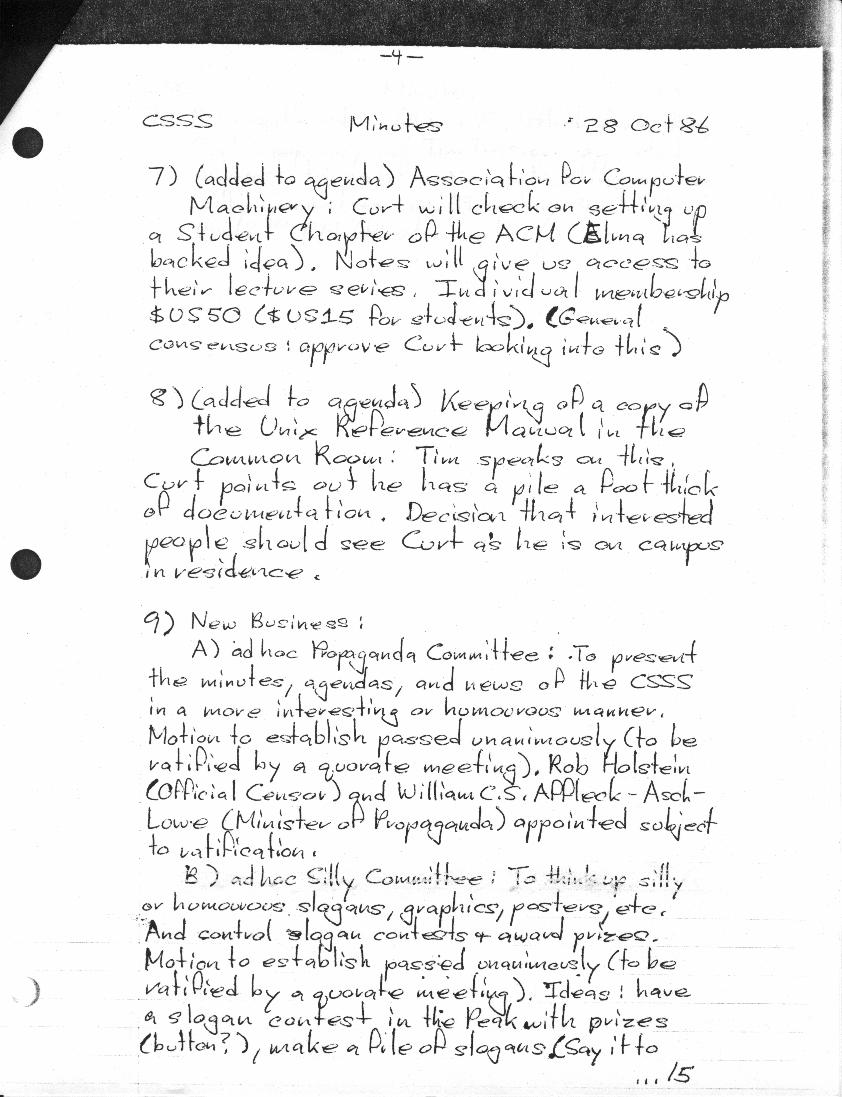 -4-
CSSS Minutes 28 Oct 86
7) (added to agenda) Association for Computer
Machinery: Curt will check on setting up
a Student Chapter of the ACM (Elma has
backed idea). Notes will give us access to
their lecture series. Individual membership
$US50 ($US15 for students). (General
consensus: approve Curt looking into this)
8) (added to agenda) Keeping of a copy of
the Unix Reference Manual in the
Common Room: Tim speaks on this.
Curt points out he has a pile a foot thick
of documentation. Decision that interested
people should see Curt as he is on campus
in residence.
9) New Business:
A) ad hoc Propaganda Committee: To present
the minutes, agendas, and news of the CSSS
in a more interesting or humourous manner.
Motion to establish passed unanimously (to be
ratified by a quorate meeting). Rob Holstein
(Official Censor) and William C.S. Affleck-Asch-
Lowe (Minister of Propaganda) appointed subject
to ratification.
B) ad hoc Silly Committee: To think up silly
or humourous slogans, graphics, posters, etc.
And control slogan contests + award prizes.
Motion to establish passed unanimously (to be
ratified by a quorate meeting). Ideas: have
a slogan contest in the Peak with prizes
(button?), make a file of slogans (Say it to
.../5